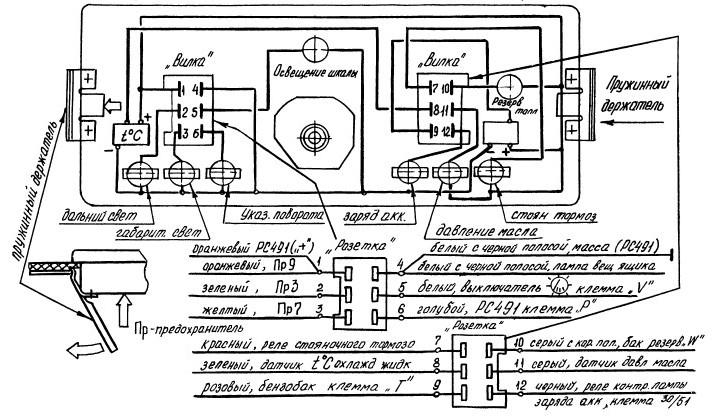 „Вилка"
Освещение шкалы
„Вилка"
1 4
2 5
3 6
7 10
8 11
9 12
Резерв
топл
+
t°C
−
− +
Пружинный
держатель
Пружинный держатель
дальний свет
габарит. свет
Указ. поворота
заряд акк.
давление масла
стоян тормоз
оранжевый РС491(„+")
„Розетка"
белый с черной полосой, масса (РС491)
оранжевый, Пр9
1
4
белый с черной полосой, лампа вещ ящика
зеленый, Пр3
2
5
белый, выключатель клемма „V"
желтый, Пр7
3
6
голубой, РС491 клемма „Р"
Пр-предохранитель
„Розетка"
красный, реле стояночного тормоза
7
10
серый с кор пол, бак резерв. „W"
зеленый, датчик t°C охлажд жидк
8
11
серый, датчик давл масла
розовый, бензобак клемма „Т"
9
12
черный, реле контр. лампы
заряда акк, клемма 30/51